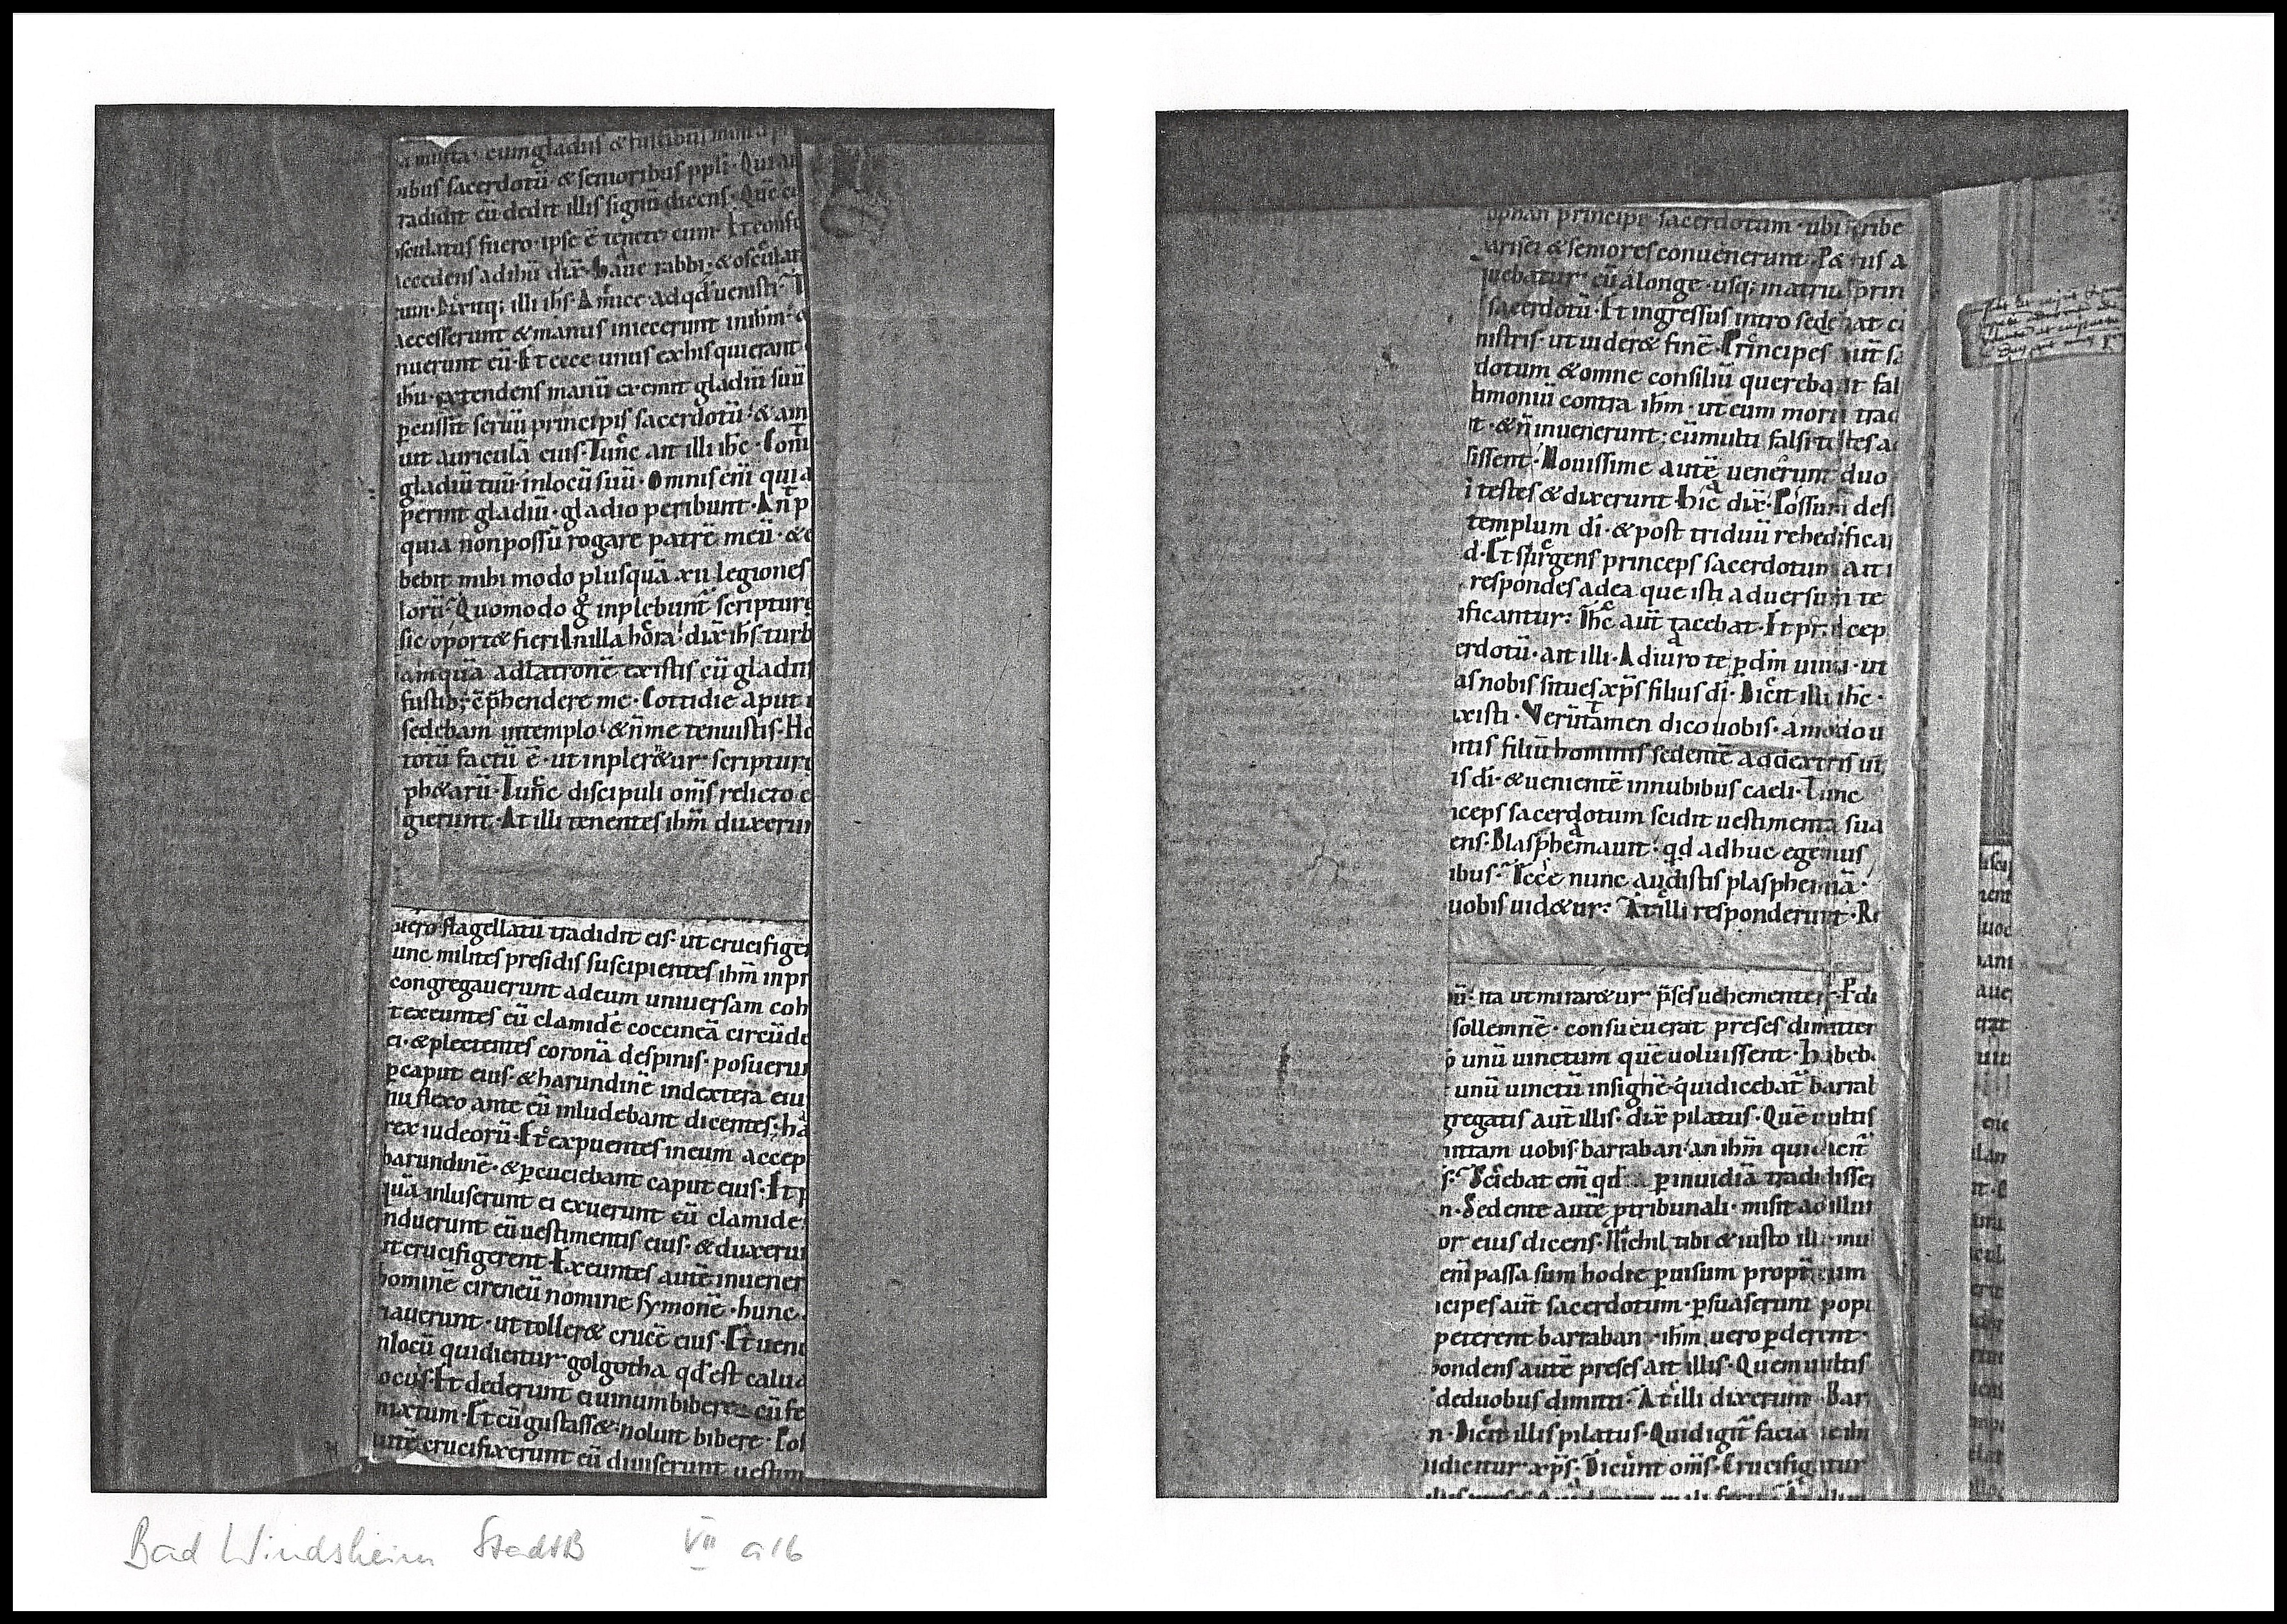 a multa cum gladiis & fustibus
ibus sacerdotū· & senioribus ppli· Qui au
radidit eū dedit illis signū dicens· Quē cū
sculatus fuero· ipse ē tenete eum· Et confe
accedens ad ihū dix̄· haue rabbi· & osculat
eum· Dixitq; illi ihs· Amice ad qd uenisti·
accesserunt & manus iniecerunt in ihm·
nuerunt eū· Et ecce unus ex his qui erant
ihu· extendens manū exemit gladiū suū
pcussit seruū principis sacerdotū· & am
uit auriculā eius· Tunc ait illi ihc· Conu
gladiū tuū in locū suū· Omnis eni qui a
perint gladiū· gladio peribunt· An p
quia non possū rogare patrē meū· & e
bebit mihi modo plusquā xii legiones
lorū· Quomodo g inplebunt scripture
sic oport& fieri In illa hora· dix̄ ihs turb
amquā ad latronē existis cū gladiis
fustib; cphendere me· Cottidie aput
sedebam in templo· & n̄ me tenuistis· Ho
totū factū ē· ut inpler&ur scripture
ph&arū· Tunc discipuli oms relicto e
gierunt· At illi tenentes ihm duxerun
uero flagellatū tradidit eis· ut crucifiger
unc milites presidis suscipientes ihm in pr
congregauerunt ad eum uniuersam coh
t exeuntes eū clamidē coccineā circūde
ei· & plectentes coronā de spinis· posueru
p caput eius· & harundinē in dextera eiu
nu flexo ante eū inludebant dicentes· ha
rex iudeorū· Et expuentes in eum accep
harundinē· & pcuciebant caput eius· Et p
quā inluserunt ei exuerunt eū clamide·
nduerunt eū uestimentis eius· & duxerun
ut crucifigerent· Exeuntes autē inuener
hominē cireneū nomine symonē· hunc
riauerunt· ut toller& crucē eius· Et uene
n locū qui dicitur golgotha qd est calua
ocus· Et dederunt ei uinum bibere cū fe
mixtum· Et cū gustass& noluit bibere· Pos
autē crucifixerunt eū diuiserunt uestim
aphan principē sacerdotum· ubi scribe
arisei & seniores conuenerunt· P&rus a
quebatur eū a longe· usq; in atriū prin
sacerdotū· Et ingressus intro sedebat cū
nistris· ut uider& finē· Principes aut̄ sa
dotum & omne consiliū querebant fal
timoniū contra ihm· ut eum morti trad
t· & n̄ inuenerunt· cū multi falsi testes ac
sissent· Nouissime autē uenerunt duo
i testes & dixerunt· hic dix̄· Possum des
templum di· & post triduū rehedifica
d· Et surgens princeps sacerdotum ait i
respondes ad ea que isti aduersum te
ificantur· Ihc aut̄ tacebat· Et princep
erdotū· ait illi· Adiuro te p dm uiuū· ut
as nobis si tu es xps filius di· Dicit illi ihc·
ixisti· Veruntamen dico uobis· amodo u
itis filiū hominis sedentē a dextris uir
is di· & uenientē in nubibus caeli· Tunc
nceps sacerdotum scidit uestimenta sua
ens· Blasphemauit· qd adhuc egemus
ibus· Ecce nunc audistis plasphemiā·
uobis uid&ur· At illi responderunt· R
bū· ita ut mirar&ur pses uehementer· P di
sollemnē· consueuerat preses dimitter
o unū uinctum quē uoluissent· habeb
unū uinctū insignē· qui dicebat barrab
gregatis aut̄ illis· dix̄ pilatus· Quē uultis
ittam uobis· barraban· an ihm qui dicit
s· Sciebat em qd p inuidiā tradidisse
n· Sedente autē ptribunali· misit ad illū
or eius dicens· Nichil tibi & iusto illi· mul
eni passa sum hodie p uisum propt̄ eum
icipes aut̄ sacerdotum· psuaserunt popu
peterent barraban· ihm uero pderent·
pondens autē preses ait illis· Quem uultis
de duobus dimitti· At illi dixerunt· Bar
n· Dicit illis pilatus· Quid igit̄ faciā de ihu
i dicitur xps· Dicunt oms· Crucifigatur
Bad Windsheim StadtB VII a 16